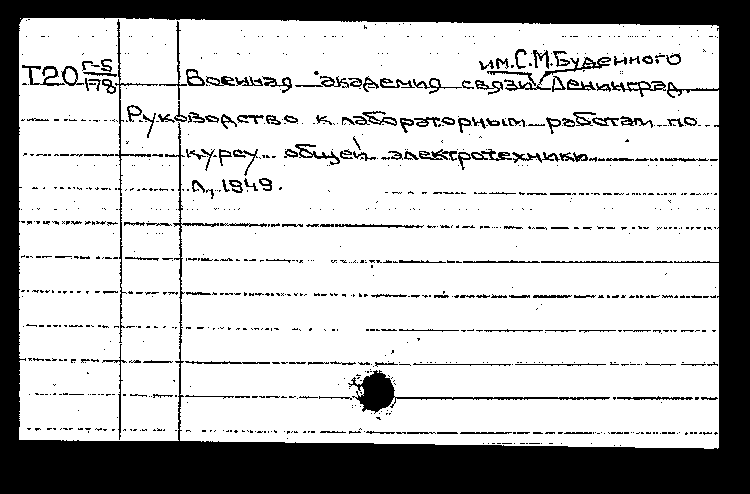 им. С.М. Буденного
Т20 Г-5/178 Военная академия связи Ленинград.
Руководство к лабораторным работам по
курсу общей электротехники
Л., 1949.